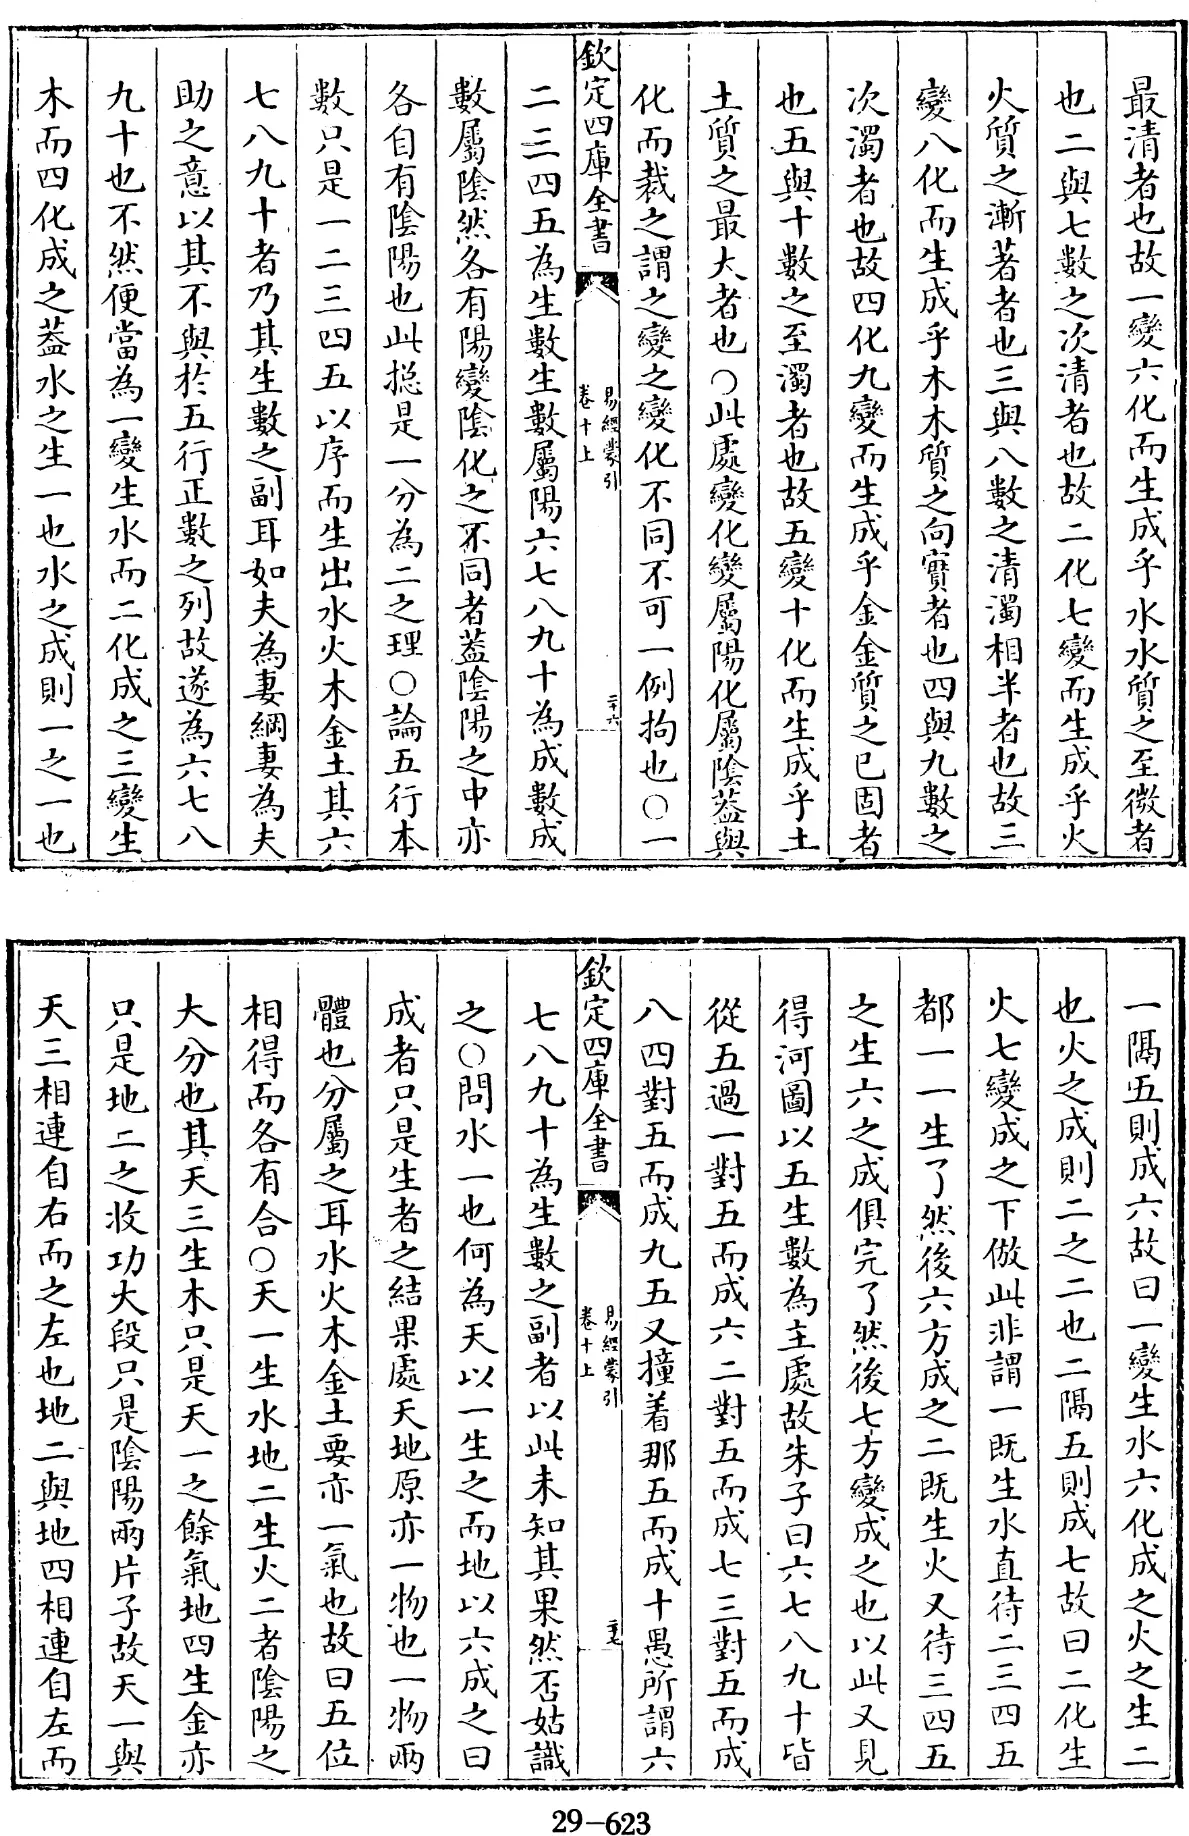 最清者也故一變六化而生成乎水水質之至微者
也二與七數之次清者也故二化七變而生成乎火
火質之漸著者也三與八數之清濁相半者也故三
變八化而生成乎木木質之向實者也四與九數之
次濁者也故四化九變而生成乎金金質之已固者
也五與十數之至濁者也故五變十化而生成乎土
土質之最大者也○此處變化變屬陽化屬陰蓋與
化而裁之謂之變之變化不同不可一例拘也○一
欽定四庫全書
易經蒙引
卷十上
二十六
二三四五為生數生數屬陽六七八九十為成數成
數屬陰然各有陽變陰化之不同者蓋陰陽之中亦
各自有陰陽也此揔是一分為二之理○論五行本
數只是一二三四五以序而生出水火木金土其六
七八九十者乃其生數之副耳如夫為妻綱妻為夫
助之意以其不與於五行正數之列故遂為六七八
九十也不然便當為一變生水而二化成之三變生
木而四化成之蓋水之生一也水之成則一之一也
一隅五則成六故曰一變生水六化成之火之生二
也火之成則二之二也二隅五則成七故曰二化生
火七變成之下倣此非謂一既生水直待二三四五
都一一生了然後六方成之二既生火又待三四五
之生六之成俱完了然後七方變成之也以此又見
得河圖以五生數為主處故朱子曰六七八九十皆
從五過一對五而成六二對五而成七三對五而成
八四對五而成九五又撞着那五而成十愚所謂六
欽定四庫全書
易經蒙引
卷十上
二十七
七八九十為生數之副者以此未知其果然否姑識
之○問水一也何為天以一生之而地以六成之曰
成者只是生者之結果處天地原亦一物也一物兩
體也分屬之耳水火木金土要亦一氣也故曰五位
相得而各有合○天一生水地二生火二者陰陽之
大分也其天三生木只是天一之餘氣地四生金亦
只是地二之收功大段只是陰陽兩片子故天一與
天三相連自右而之左也地二與地四相連自左而
29-623